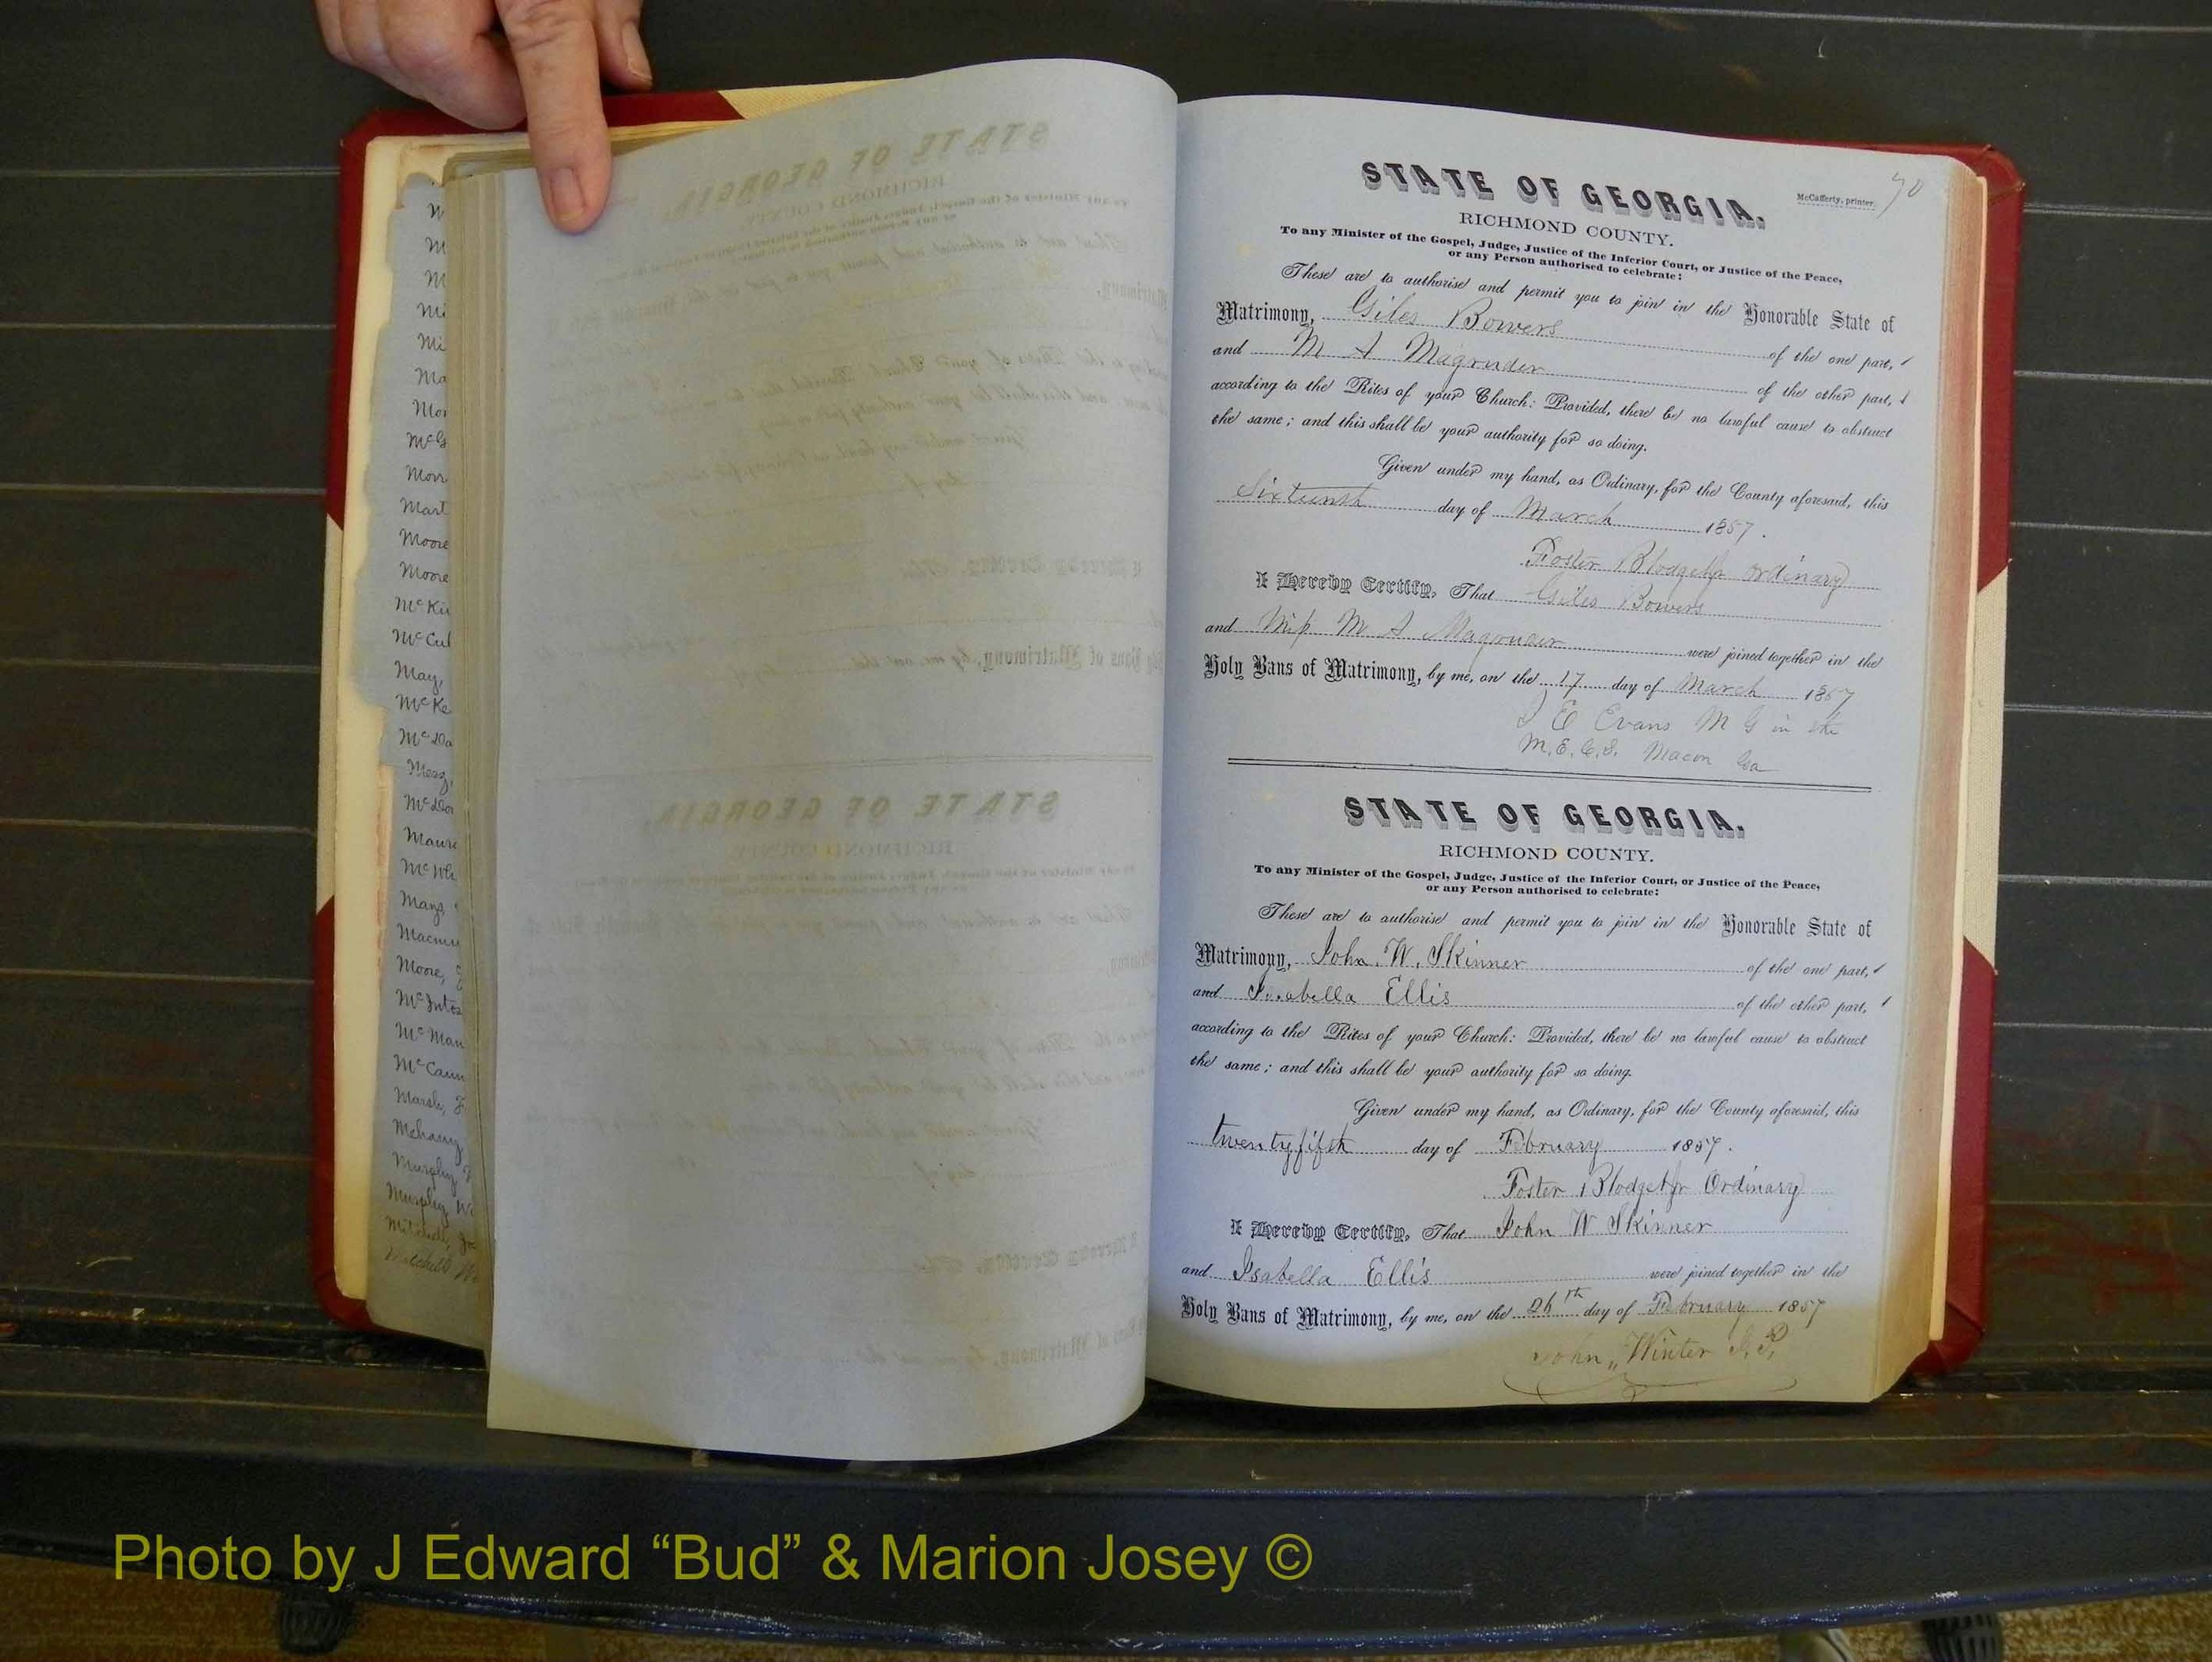 W
M
M
Mi
Mi
Ma
Mor
McG
Morr
Mart
Moore
Moore
McKi
McCul
May,
McKe
McDa
Meag,
McDo
Maur
McWh
Mays,
Macmu
Moore,
McInto
McMan
McCann
Marsh, F
Mehany
Murphy
Murphy, W
Mitchell, Jo
Mitchell W
STATE OF GEORGIA.
McCafferty, printer.
70
RICHMOND COUNTY.
To any Minister of the Gospel, Judge, Justice of the Inferior Court, or Justice of the Peace,
or any Person authorised to celebrate:
These are to authorise and permit you to join in the Honorable State of
Matrimony, Giles Bowers of the one part,
and M A Magruder of the other part,
according to the Rites of your Church: Provided, there be no lawful cause to obstruct
the same; and this shall be your authority for so doing.
Given under my hand, as Ordinary, for the County aforesaid, this
Sixteenth day of March 1857.
Foster Blodget Jr Ordinary
I Hereby Certify, That Giles Bowers
and Miss M A Magruder were joined together in the
Holy Bans of Matrimony, by me, on the 17 day of March 1857
J E Evans M G in the
M.E.C.S. Macon Ga
STATE OF GEORGIA.
RICHMOND COUNTY.
To any Minister of the Gospel, Judge, Justice of the Inferior Court, or Justice of the Peace,
or any Person authorised to celebrate:
These are to authorise and permit you to join in the Honorable State of
Matrimony, John. W. Skinner of the one part,
and Isabella Ellis of the other part,
according to the Rites of your Church: Provided, there be no lawful cause to obstruct
the same; and this shall be your authority for so doing.
Given under my hand, as Ordinary, for the County aforesaid, this
twenty fifth day of February 1857.
Foster Blodget Jr Ordinary
I Hereby Certify, That John W Skinner
and Isabella Ellis were joined together in the
Holy Bans of Matrimony, by me, on the 26th day of February 1857
John Winter J.P.
Photo by J Edward “Bud” & Marion Josey ©